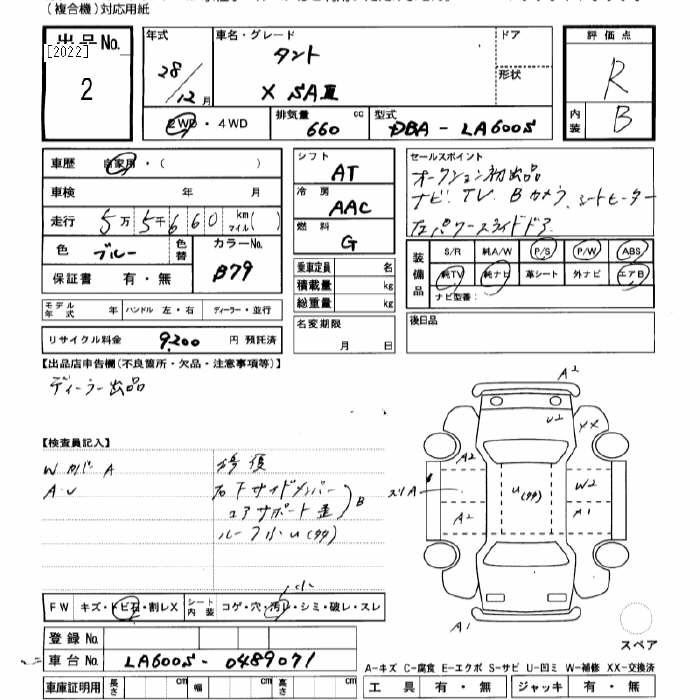 (複合機)対応用紙
出品No.
[2022]
2
年式
28/12月
車名・グレード
タント
X SAⅢ
ドア
形状
2WD・4WD
排気量 660 cc
型式 DBA - LA600S
評価点
R
内装 B
車歴 自家用・( )
車検 年 月
走行 5万5千660 km マイル( )
色 ブルー 色替
カラーNo. B79
保証書 有・無
モデル年式 年 ハンドル 左・右 ディーラー・並行
リサイクル料金 9,200 円 預託済
シフト AT
冷房 AAC
燃料 G
乗車定員 名
積載量 kg
総重量 kg
名変期限
月 日
セールスポイント
オークション初出品
ナビ、TV、Bカメラ、シートヒーター
左パワースライドドア
装備品
S/R 純A/W P/S P/W ABS
純TV 純ナビ 革シート 外ナビ エアB
ナビ型番:
後日品
【出品店申告欄(不良箇所・欠品・注意事項等)】
ディーラー出品
【検査員記入】
A.U
修復
右下サイドメンバー
コアサポート歪
B
FW キズ・トビ石・割レX
シート内装 コゲ・穴・汚レ・シミ・破レ・スレ
小
登録No.
車台No. LA600S - 0489071
車庫証明用 長さ cm 幅 cm 高さ cm
A2
U2
XX
A2
スリA
A2
W2
A1
A1
スペア
A-キズ C-腐食 E-エクボ S-サビ U-凹ミ W-補修 XX-交換済
工具 有・無 ジャッキ 有・無